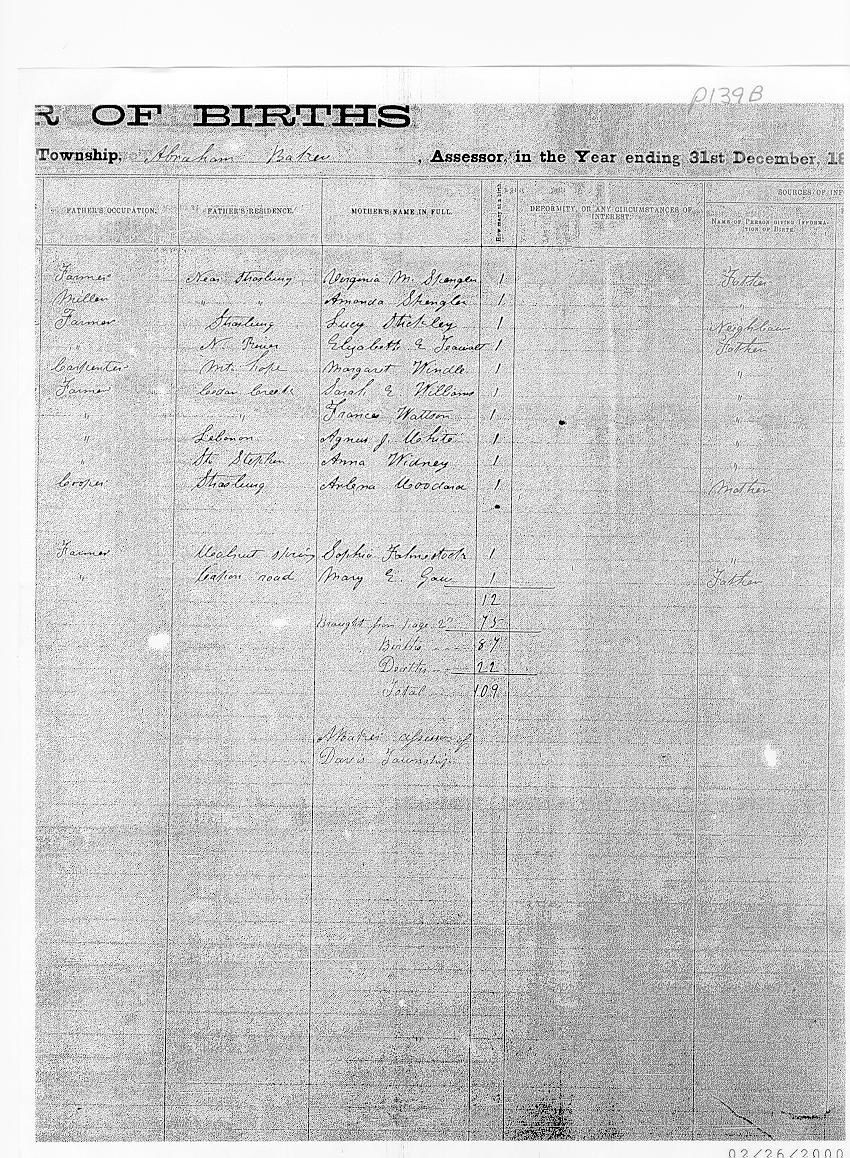 P139B
R OF BIRTHS
Township, Abraham Baker, Assessor, in the Year ending 31st December, 18
SOURCES OF INF
FATHER'S OCCUPATION. FATHER'S RESIDENCE. MOTHER'S NAME IN FULL. How many at a birth DEFORMITY, OR ANY CIRCUMSTANCES OF INTEREST. NAME OF PERSON GIVING INFORMATION OF BIRTH.
Farmer Near Strasburg Virginia M. Spengler 1 Father
Miller " " Amanda Spengler 1 "
Farmer Strasburg Lucy Stickley 1 Neighbour
" N. River Elizabeth E 1 Father
Carpenter Mt. hope Margaret Windle 1 "
Farmer Cedar Creek Sarah E. Williams 1 "
" " Frances Wattson 1 "
" Lebanon Agnus J. White 1 "
" St. Stephen Anna Widney 1 "
Cooper Strasburg Arlena Woodard 1 Mother
Farmer Walnut spring Sophia Fahnestock 1 "
" Capon road Mary E. Gaw 1 Father
12
Brought from page 2" 75
Births 87
Deaths 22
Total 109
A Baker assessor of
Davis Township
02/26/2000